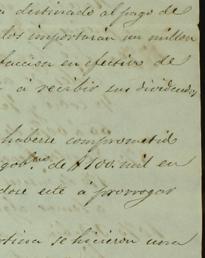 destinado al pago de
los importarán un millon
duccion en efectivo de
á recibir sus dividendos
haberse comprometido
gob.no de $100. mil en
dose este á prorrogar
se hicieron una